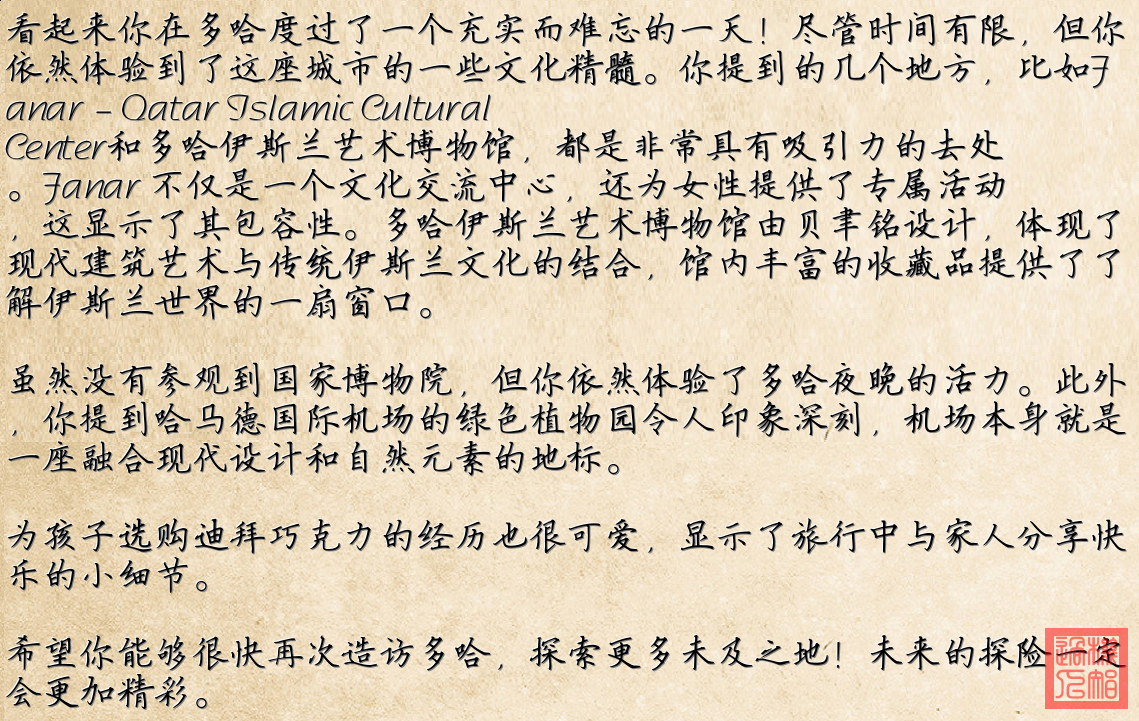 看起来你在多哈度过了一个充实而难忘的一天！尽管时间有限，但你
依然体验到了这座城市的一些文化精髓。你提到的几个地方，比如F
anar - Qatar Islamic Cultural
Center和多哈伊斯兰艺术博物馆，都是非常具有吸引力的去处
。Fanar 不仅是一个文化交流中心，还为女性提供了专属活动
，这显示了其包容性。多哈伊斯兰艺术博物馆由贝聿铭设计，体现了
现代建筑艺术与传统伊斯兰文化的结合，馆内丰富的收藏品提供了了
解伊斯兰世界的一扇窗口。
虽然没有参观到国家博物院，但你依然体验了多哈夜晚的活力。此外
，你提到哈马德国际机场的绿色植物园令人印象深刻，机场本身就是
一座融合现代设计和自然元素的地标。
为孩子选购迪拜巧克力的经历也很可爱，显示了旅行中与家人分享快
乐的小细节。
希望你能够很快再次造访多哈，探索更多未及之地！未来的探险一定
会更加精彩。